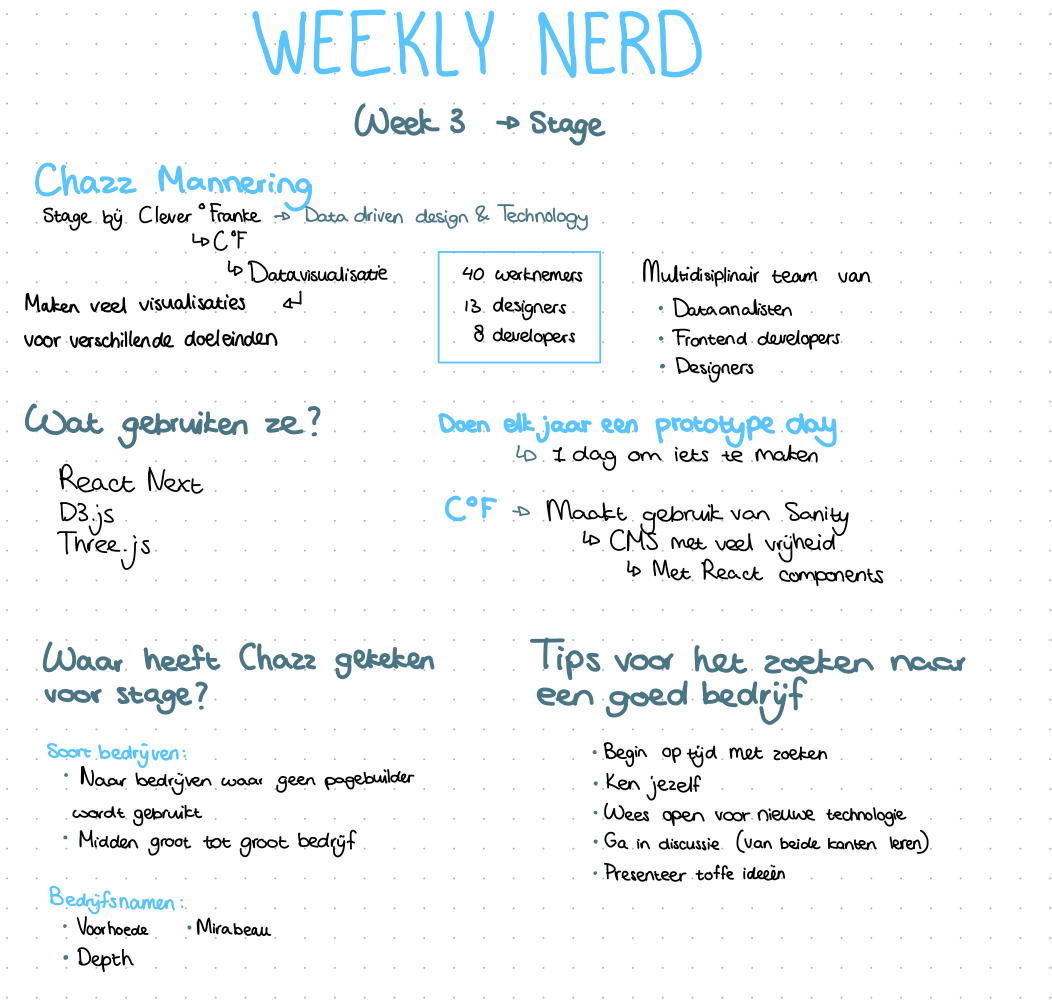 WEEKLY NERD
Week 3 → Stage
Chazz Mannering
Stage bij Clever °Franke → Data driven design & Technology
↳ C°F
↳ Datavisualisatie
Maken veel visualisaties ↲
voor verschillende doeleinden
40 werknemers
13 designers
8 developers
Multidisiplinair team van
• Data analisten
• Frontend developers
• Designers
Wat gebruiken ze?
React Next
D3.js
Three.js
Doen elk jaar een prototype day
↳ 1 dag om iets te maken
C°F → Maakt gebruik van Sanity
↳ CMS met veel vrijheid
↳ Met React components
Waar heeft Chazz gekeken
voor stage?
Soort bedrijven:
• Naar bedrijven waar geen pagebuilder
wordt gebruikt
• Midden groot tot groot bedrijf
Bedrijfsnamen:
• Voorhoede • Mirabeau
• Depth
Tips voor het zoeken naar
een goed bedrijf
• Begin op tijd met zoeken
• Ken jezelf
• Wees open voor nieuwe technologie
• Ga in discussie (van beide kanten leren)
• Presenteer toffe ideeën